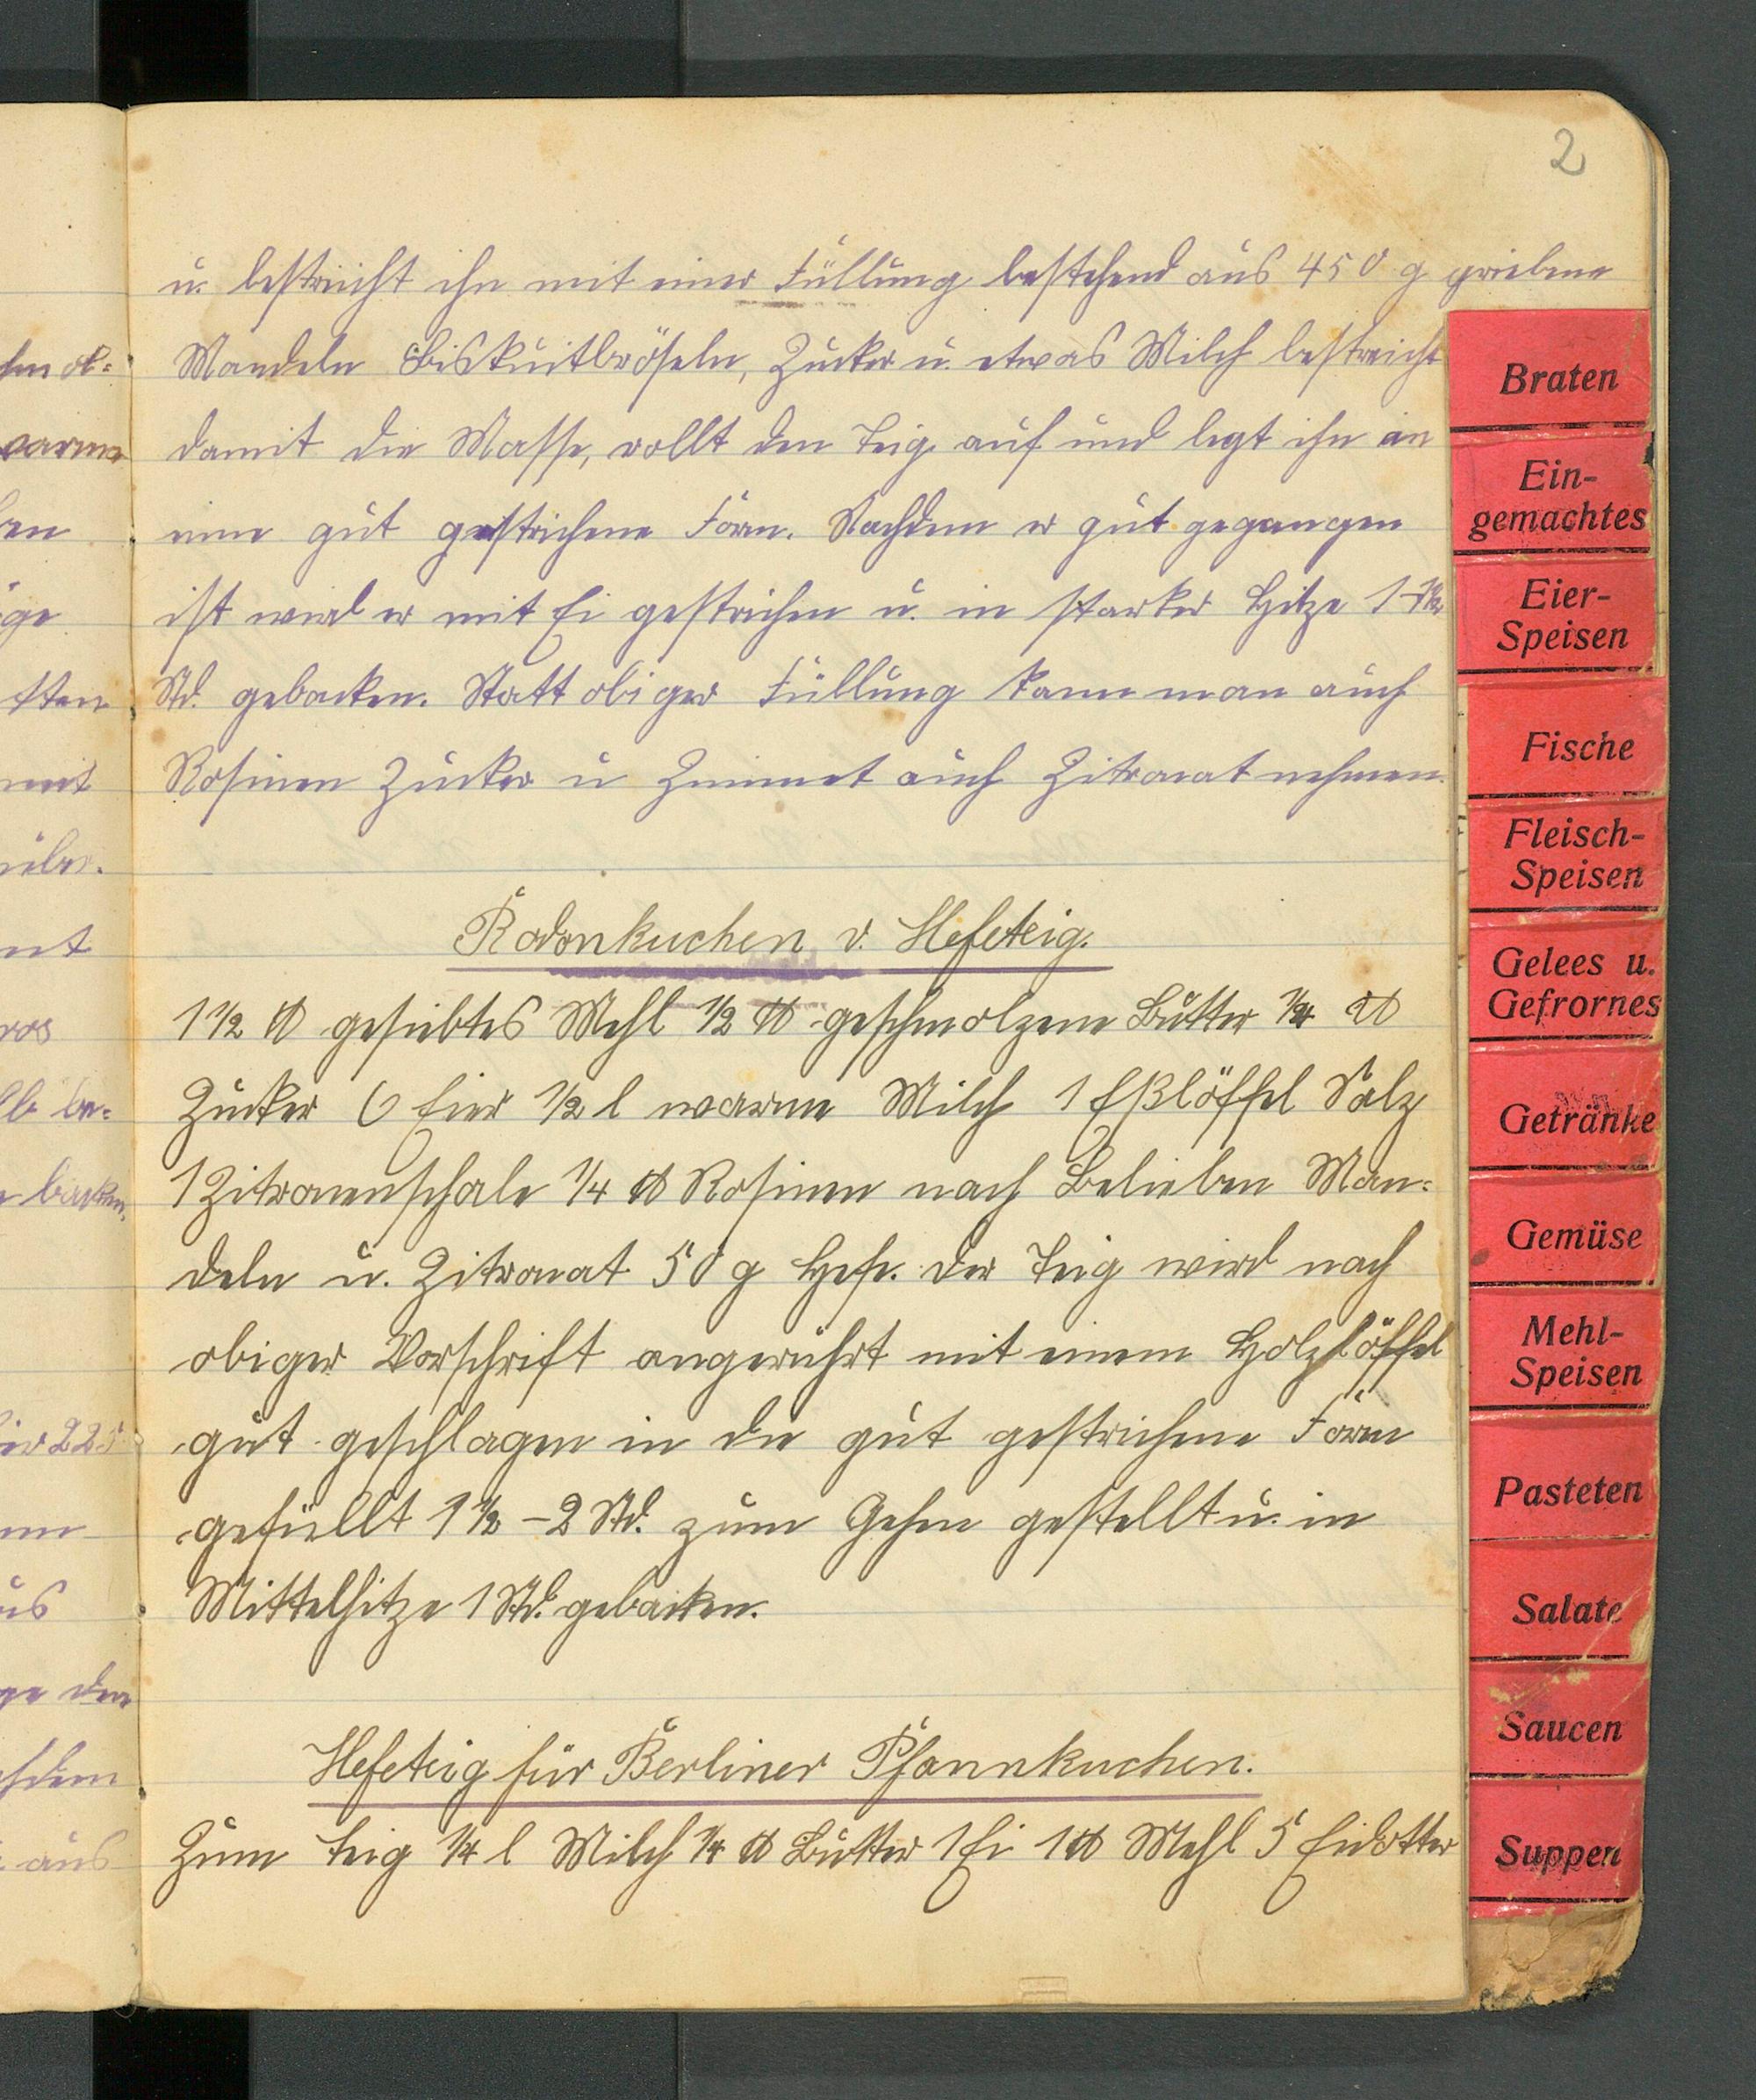 2
u. bestreicht ihn mit einer Füllung bestehend aus 450 g geriebene
Mandeln Biskuitbröseln, Zucker u. etwas Milch bestreicht
damit die Masse, rollt den Teig auf und legt ihn in
eine gut gestrichene Form. Nachdem er gut gegangen
ist wird er mit Ei gestrichen u. in starker Hitze 1-1½
Std. gebacken. Statt obiger Füllung kann man auch
Rosinen Zucker u Zimmet auch Zitronat nehmen.
Rodonkuchen v. Hefeteig.
1 1/2 ℔ gesiebtes Mehl 1/2 ℔ geschmolzene Butter 1/4 ℔
Zucker 6 Eier 1/2 l warme Milch 1 Eßlöffel Salz
1 Zitronenschale 1/4 ℔ Rosinen nach Belieben Man=
deln u. Zitronat 50 g Hefe. Der Teig wird nach
obiger Vorschrift angerührt mit einem Holzlöffel
gut geschlagen in die gut gestrichene Form
gefüllt 1 1/2 - 2 Std. zum Gehen gestellt u. in
Mittelhitze 1 Std. gebacken.
Hefeteig für Berliner Pfannkuchen.
Zum Teig 1/4 l Milch 1/4 ℔ Butter 1 Ei 1 ℔ Mehl 5 Eidotter
Braten
Ein-
gemachtes
Eier-
Speisen
Fische
Fleisch-
Speisen
Gelees u.
Gefrornes
Getränke
Gemüse
Mehl-
Speisen
Pasteten
Salate
Saucen
Suppen